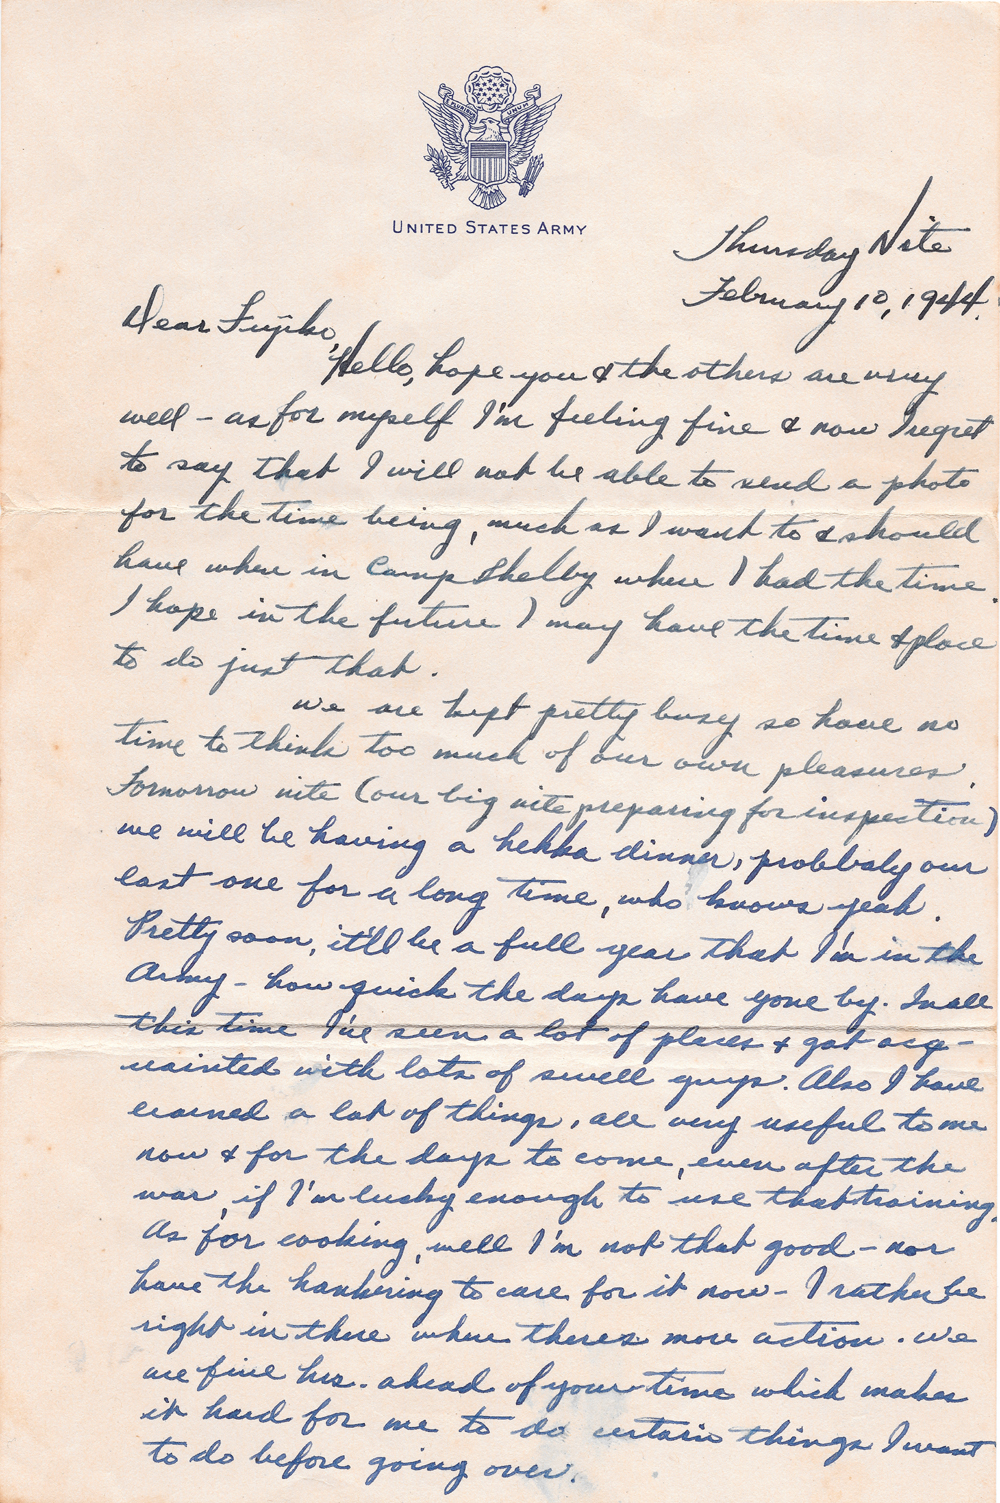 E PLURIBUS UNUM
UNITED STATES ARMY
Thursday Nite
February 10, 1944.
Dear Fujiko,
Hello, hope you & the others are very
well - as for myself I'm feeling fine & now I regret
to say that I will not be able to send a photo
for the time being, much as I want to & should
have when in Camp Shelby where I had the time.
I hope in the future I may have the time & place
to do just that.
We are kept pretty busy so have no
time to think too much of our own pleasures.
Tomorrow nite (our big nite preparing for inspection)
we will be having a hekka dinner, probbaly our
last one for a long time, who knows yeah.
Pretty soon, it'll be a full year that I'm in the
Army - how quick the days have gone by. In all
this time I've seen a lot of places & got acq-
uainted with lots of swell guys. Also I have
learned a lot of things, all very useful to me
now & for the days to come, even after the
war, if I'm lucky enough to use that training.
As for cooking, well I'm not that good - nor
have the hankering to care for it now - I rather be
right in there where theres more action. We
are five hrs. ahead of your time which makes
it hard for me to do certain things I want
to do before going over.